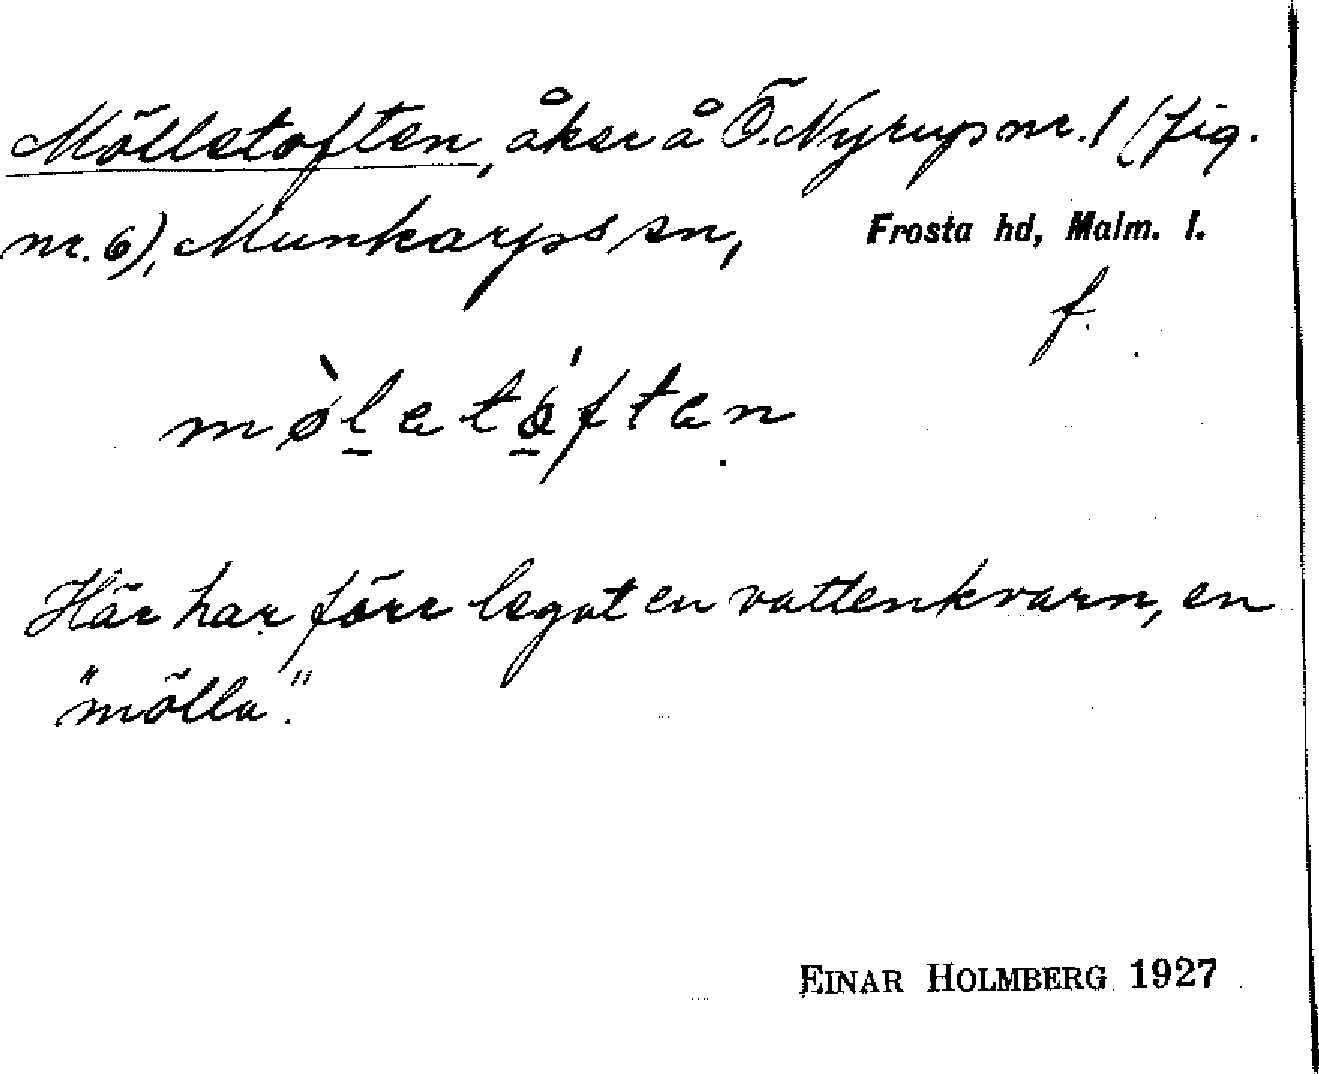 Mölletoften, åker å Ö. Nyrup nr. 1 (fig.
nr. 6), Munkarps sn, Frosta hd, Malm. l.
f.
mø̀letóften
Här har förr legat en vattenkvarn, en
"mölla".
EINAR HOLMBERG 1927